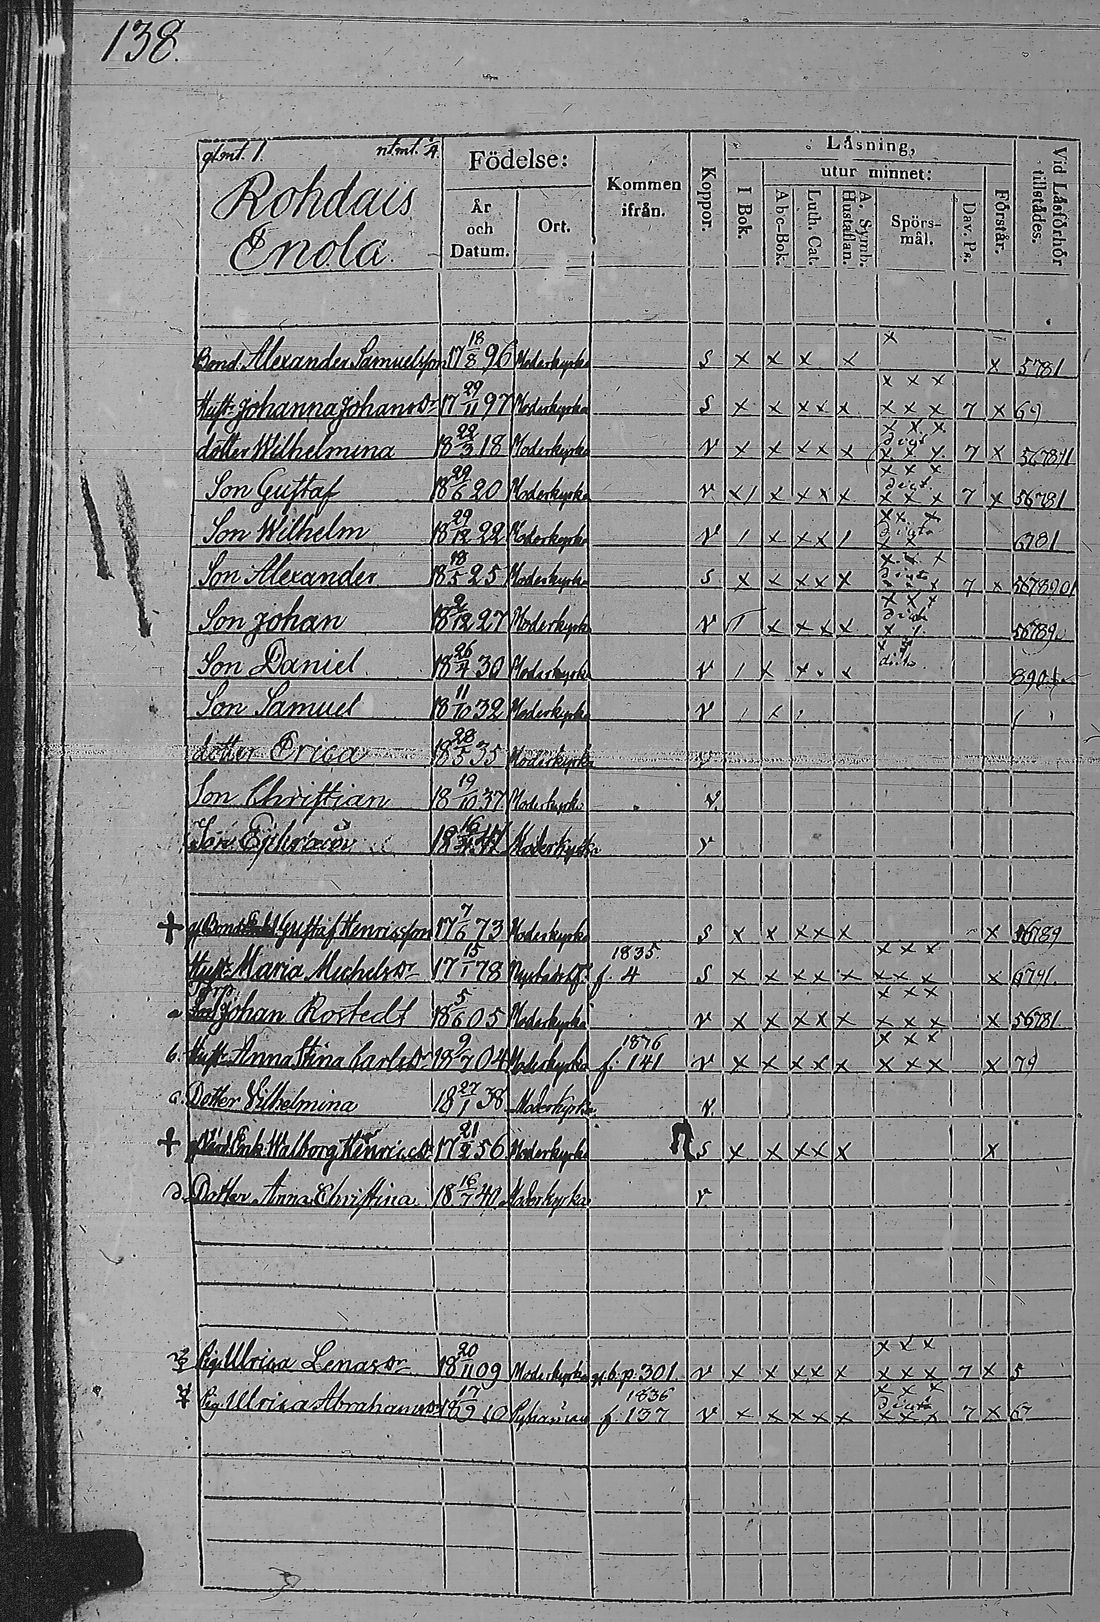 138.
glmt. 1. ntmt. 1/4
Rohdais
Enola
Födelse:
År och Datum.
Ort.
Kommen ifrån.
Koppor.
Läsning,
I Bok.
utur minnet:
Abc-Bok.
Luth. Cat.
A. Symb. Hustaflan.
Spörsmål.
Dav. Ps.
Förstår.
Vid Läsförhör tillstädes.
Bond. Alexander Samuelsson 17 18/8 96 Moderkyrka s x x x x x x 5781
Hust. Johanna Johansdr 17 29/11 97 Moderkyrka s x x x x x x x x x x x 7 x 69
dotter Wilhelmina 18 22/3 18 Moderkyrka v x x x x x x x x dict x x x 7 x
Son Gustaf 18 29/6 20 Moderkyrka v x / x x x x x x x dict x x x 7 x 56781
Son Wilhelm 18 29/12 22 Moderkyrka v / x x x / x x x dicta x x 6781
Son Alexander 18 18/5 25 Moderkyrka s x x x x x x x x dicta x x x 7 x 5678901
Son Johan 18 2/12 27 Moderkyrka v x x x x x x x 56789
Son Daniel 18 26/4 30 Moderkyrka v / x x x dicta 890
Son Samuel 18 11/10 32 Moderkyrka v / x
dotter Erica 18 28/5 35 Moderkyrka v
Son Christian 18 19/10 37 Moderkyrka v.
Son Moderkyrka v
+ Gustaf Henricsson 17 7/6 73 Moderkyrka s x x x x x x
Hust. Maria Michelsdr 17 15/1 78 1835 f. 4 s x x x x x x x x x x x x
a Johan Rostedt 18 5/6 05 Moderkyrka v x x x x x x x x x x x x 56781
b. Hust. Anna Stina Carlsdr 18 9/7 04 Moderkyrka f. 141 v x x x x x x x x x x x x 79
c. Dotter Vilhelmina 18 27/1 38 Moderkyrka v.
+ Walborg Henricsdr 17 21/2 56 Moderkyrka s x x x x x x
d. Dotter Anna Christina 18 16/7 40 Moderkyrka v.
Pig. Ulrica Lenasdr 18 20/11 09 Moderkyrka p. 301. v x x x x x x x x x x x 7 x 5
Pig. Ulrica Abrahamsdr 18 17/9 10 1836 f. 137 v x x x x x x x x dicta x x x 7 x 67